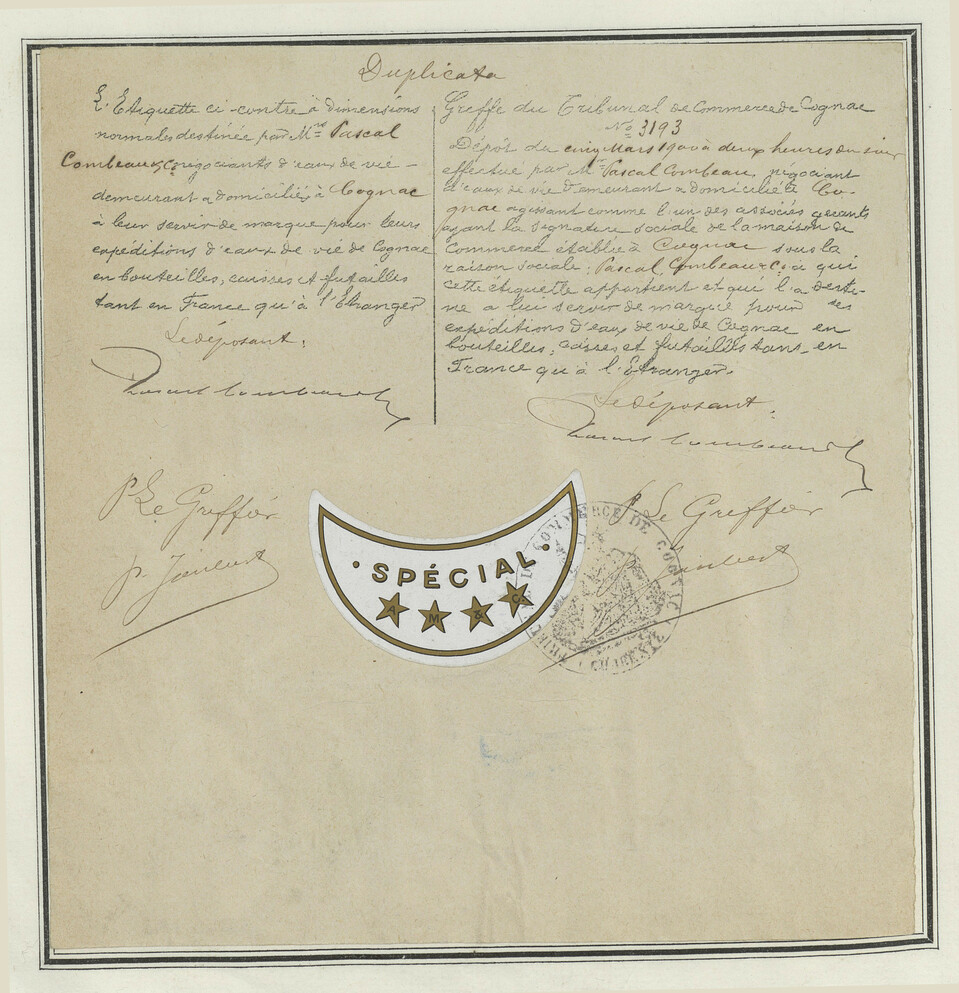 Duplicata
L'Etiquette ci-contre à dimensions
normales destinée par Mrs Pascal
Combeau & Co négociants d'eaux de vie -
demeurant & domiciliés à Cognac
à leur servir de marque pour leurs
expéditions d'eaux de vie de Cognac
en bouteilles, caisses et futailles
tant en France qu'à l'Etranger
Le déposant:
Pascal Combeau
P. Le Greffier
p. Joubert
Greffe du Tribunal de Commerce de Cognac
No 3193
Dépôt du cinq Mars 1900 à deux heures du soir
effectué par Mr Pascal Combeau, négociant
d'eaux de vie demeurant & domicilié à Co-
gnac agissant comme l'un des associés gérants
ayant la signature sociale de la maison de
Commerce établie à Cognac sous la
raison sociale: Pascal, Combeau & Co à qui
cette étiquette appartient et qui l'a desti-
née à lui servir de marque pour ses
expéditions d'eaux de vie de Cognac en
bouteilles, caisses et futailles tant en
France qu'à l'Etranger.
Le déposant:
Pascal Combeau
p. Le Greffier
Joubert
· SPÉCIAL ·
A M & C
TRIBUNAL DE COMMERCE DE COGNAC
(CHARENTE)